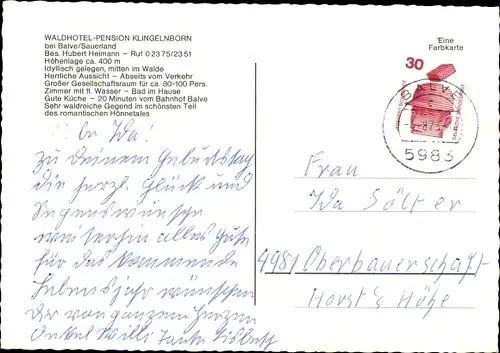 WALDHOTEL-PENSION KLINGELNBORN
bei Balve/Sauerland
Bes. Hubert Heimann - Ruf 02375/2351
Höhenlage ca. 400 m
Idyllisch gelegen, mitten im Walde
Herrliche Aussicht - Abseits vom Verkehr
Großer Gesellschaftsraum für ca. 80-100 Pers.
Zimmer mit fl. Wasser - Bad im Hause
Gute Küche - 20 Minuten vom Bahnhof Balve
Sehr waldreiche Gegend im schönsten Teil
des romantischen Hönnetales
Eine
Farbkarte
30
BALVE
5983
Ida!
Zu Deinem Geburtstag
die herzl. Glück und
Segenswünsche
weiterhin alles Gute
für das kommende
Lebensjahr wünschen
Dir von ganzem Herzen
Onkel Willi Tante Lisbeth
Frau
Ida Sölter
4981 Oberbauerschaft
Horst's Höhe